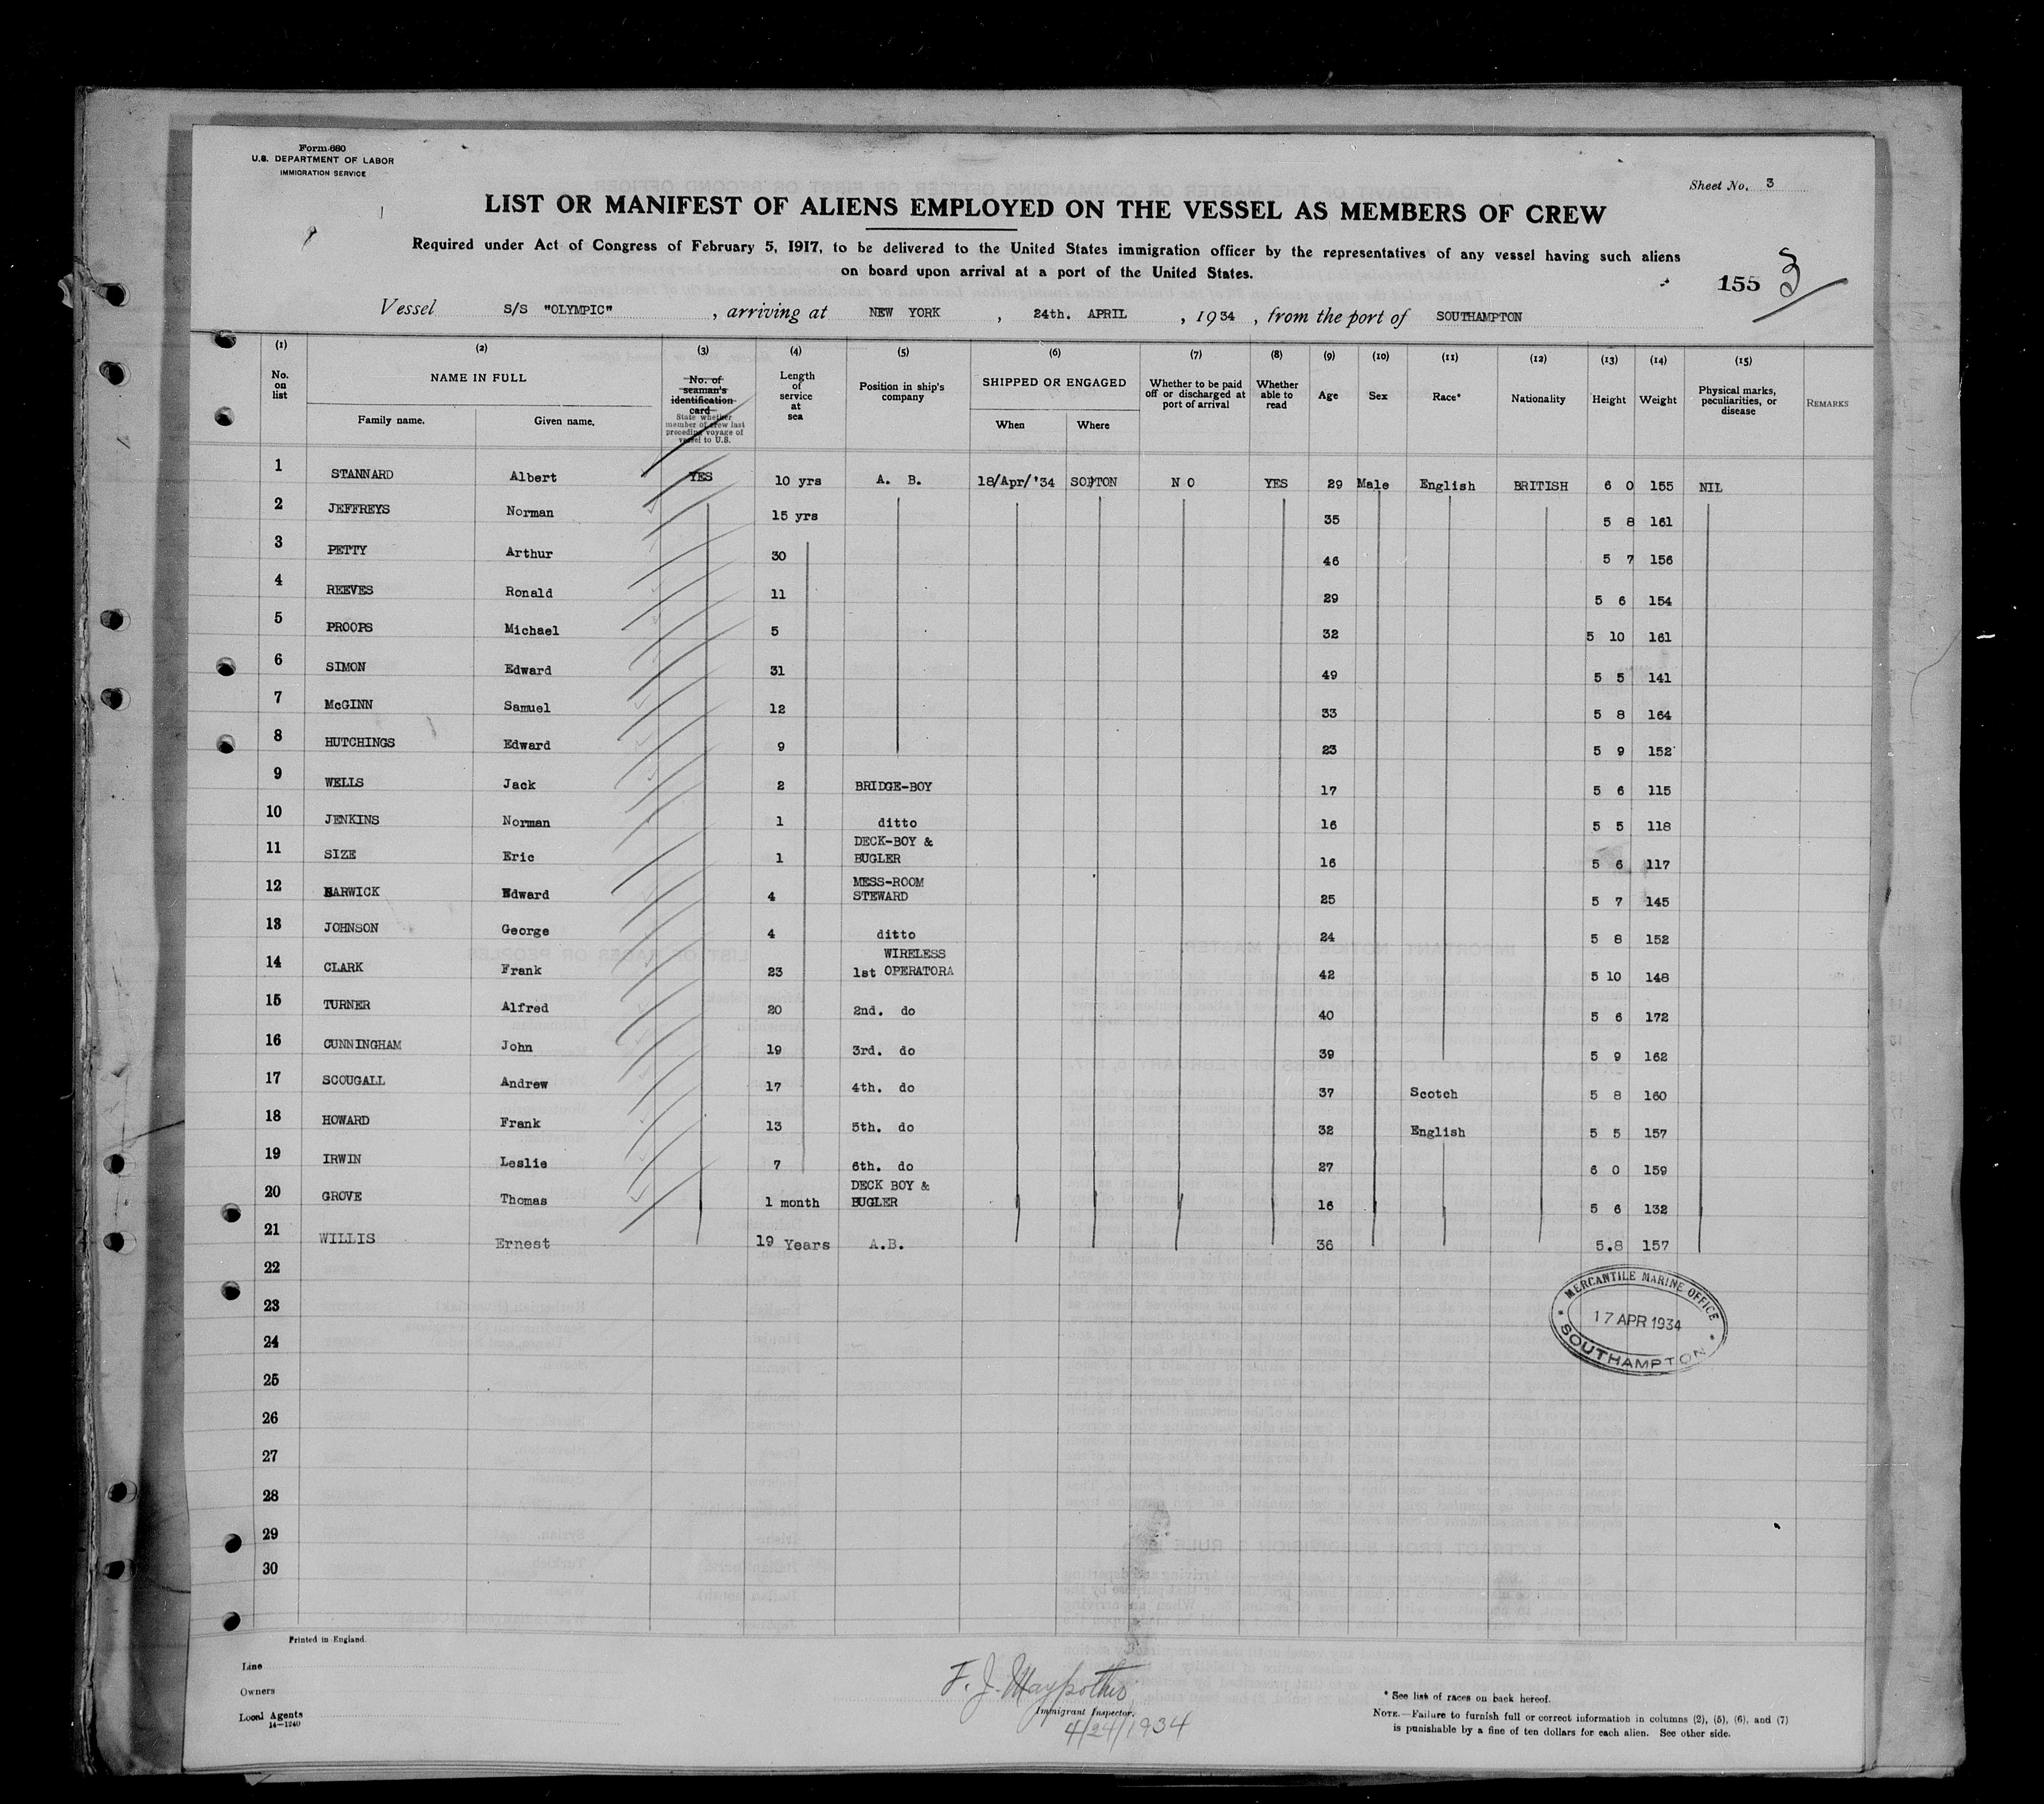 Form 680
U.S. DEPARTMENT OF LABOR
IMMIGRATION SERVICE
Sheet No. 3
LIST OR MANIFEST OF ALIENS EMPLOYED ON THE VESSEL AS MEMBERS OF CREW
Required under Act of Congress of February 5, 1917, to be delivered to the United States immigration officer by the representatives of any vessel having such aliens
on board upon arrival at a port of the United States.
155 3
Vessel S/S "OLYMPIC" , arriving at NEW YORK , 24th. APRIL , 1934 , from the port of SOUTHAMPTON
(1) (2) (3) (4) (5) (6) (7) (8) (9) (10) (11) (12) (13) (14) (15)
No. on list NAME IN FULL Family name. Given name. No. of seaman's identification card State whether member of crew last preceding voyage of vessel to U.S. Length of service at sea Position in ship's company SHIPPED OR ENGAGED When Where Whether to be paid off or discharged at port of arrival Whether able to read Age Sex Race* Nationality Height Weight Physical marks, peculiarities, or disease REMARKS
1 STANNARD Albert YES 10 yrs A. B. 18/Apr/'34 SO'TON NO YES 29 Male English BRITISH 6 0 155 NIL
2 JEFFREYS Norman 15 yrs 35 5 8 161
3 PETTY Arthur 30 46 5 7 156
4 REEVES Ronald 11 29 5 6 154
5 PROOPS Michael 5 32 5 10 161
6 SIMON Edward 31 49 5 5 141
7 McGINN Samuel 12 33 5 8 164
8 HUTCHINGS Edward 9 23 5 9 152
9 WELLS Jack 2 BRIDGE-BOY 17 5 6 115
10 JENKINS Norman 1 ditto 16 5 5 118
11 SIZE Eric 1 DECK-BOY & BUGLER 16 5 6 117
12 BARWICK Edward 4 MESS-ROOM STEWARD 25 5 7 145
13 JOHNSON George 4 ditto 24 5 8 152
14 CLARK Frank 23 1st WIRELESS OPERATORA 42 5 10 148
15 TURNER Alfred 20 2nd. do 40 5 6 172
16 CUNNINGHAM John 19 3rd. do 39 5 9 162
17 SCOUGALL Andrew 17 4th. do 37 Scotch 5 8 160
18 HOWARD Frank 13 5th. do 32 English 5 5 157
19 IRWIN Leslie 7 6th. do 27 6 0 159
20 GROVE Thomas 1 month DECK BOY & BUGLER 16 5 6 132
21 WILLIS Ernest 19 Years A.B. 36 5.8 157
22
23
24
25
26
27
28
29
30
MERCANTILE MARINE OFFICE
17 APR 1934
SOUTHAMPTON
Printed in England.
Line
Owners
Local Agents
14-1240
F. J. Maypother
Immigrant Inspector.
4/24/1934
* See list of races on back hereof.
NOTE.—Failure to furnish full or correct information in columns (2), (5), (6), and (7)
is punishable by a fine of ten dollars for each alien. See other side.